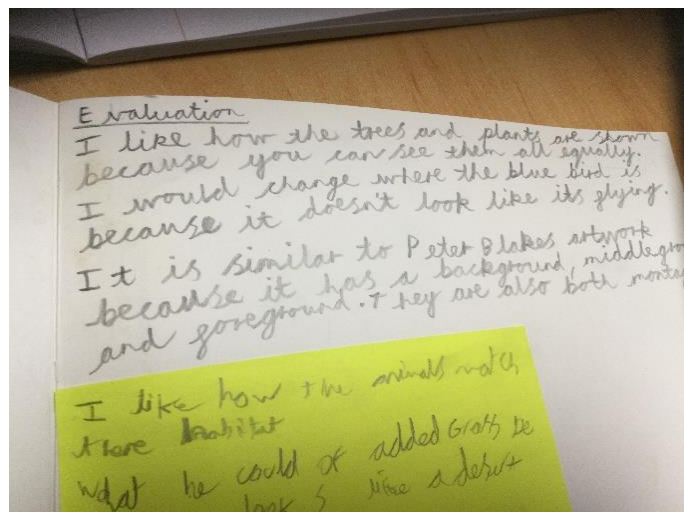 Evaluation
I like how the trees and plants are shown
because you can see them all equally.
I would change where the blue bird is
because it doesn't look like its flying.
It is similar to Peter Blakes artwork
because it has a background, middlegro
and foreground. They are also both monta
I like how the animals match
there habitat
what he could of added Grass be
looks like a desert